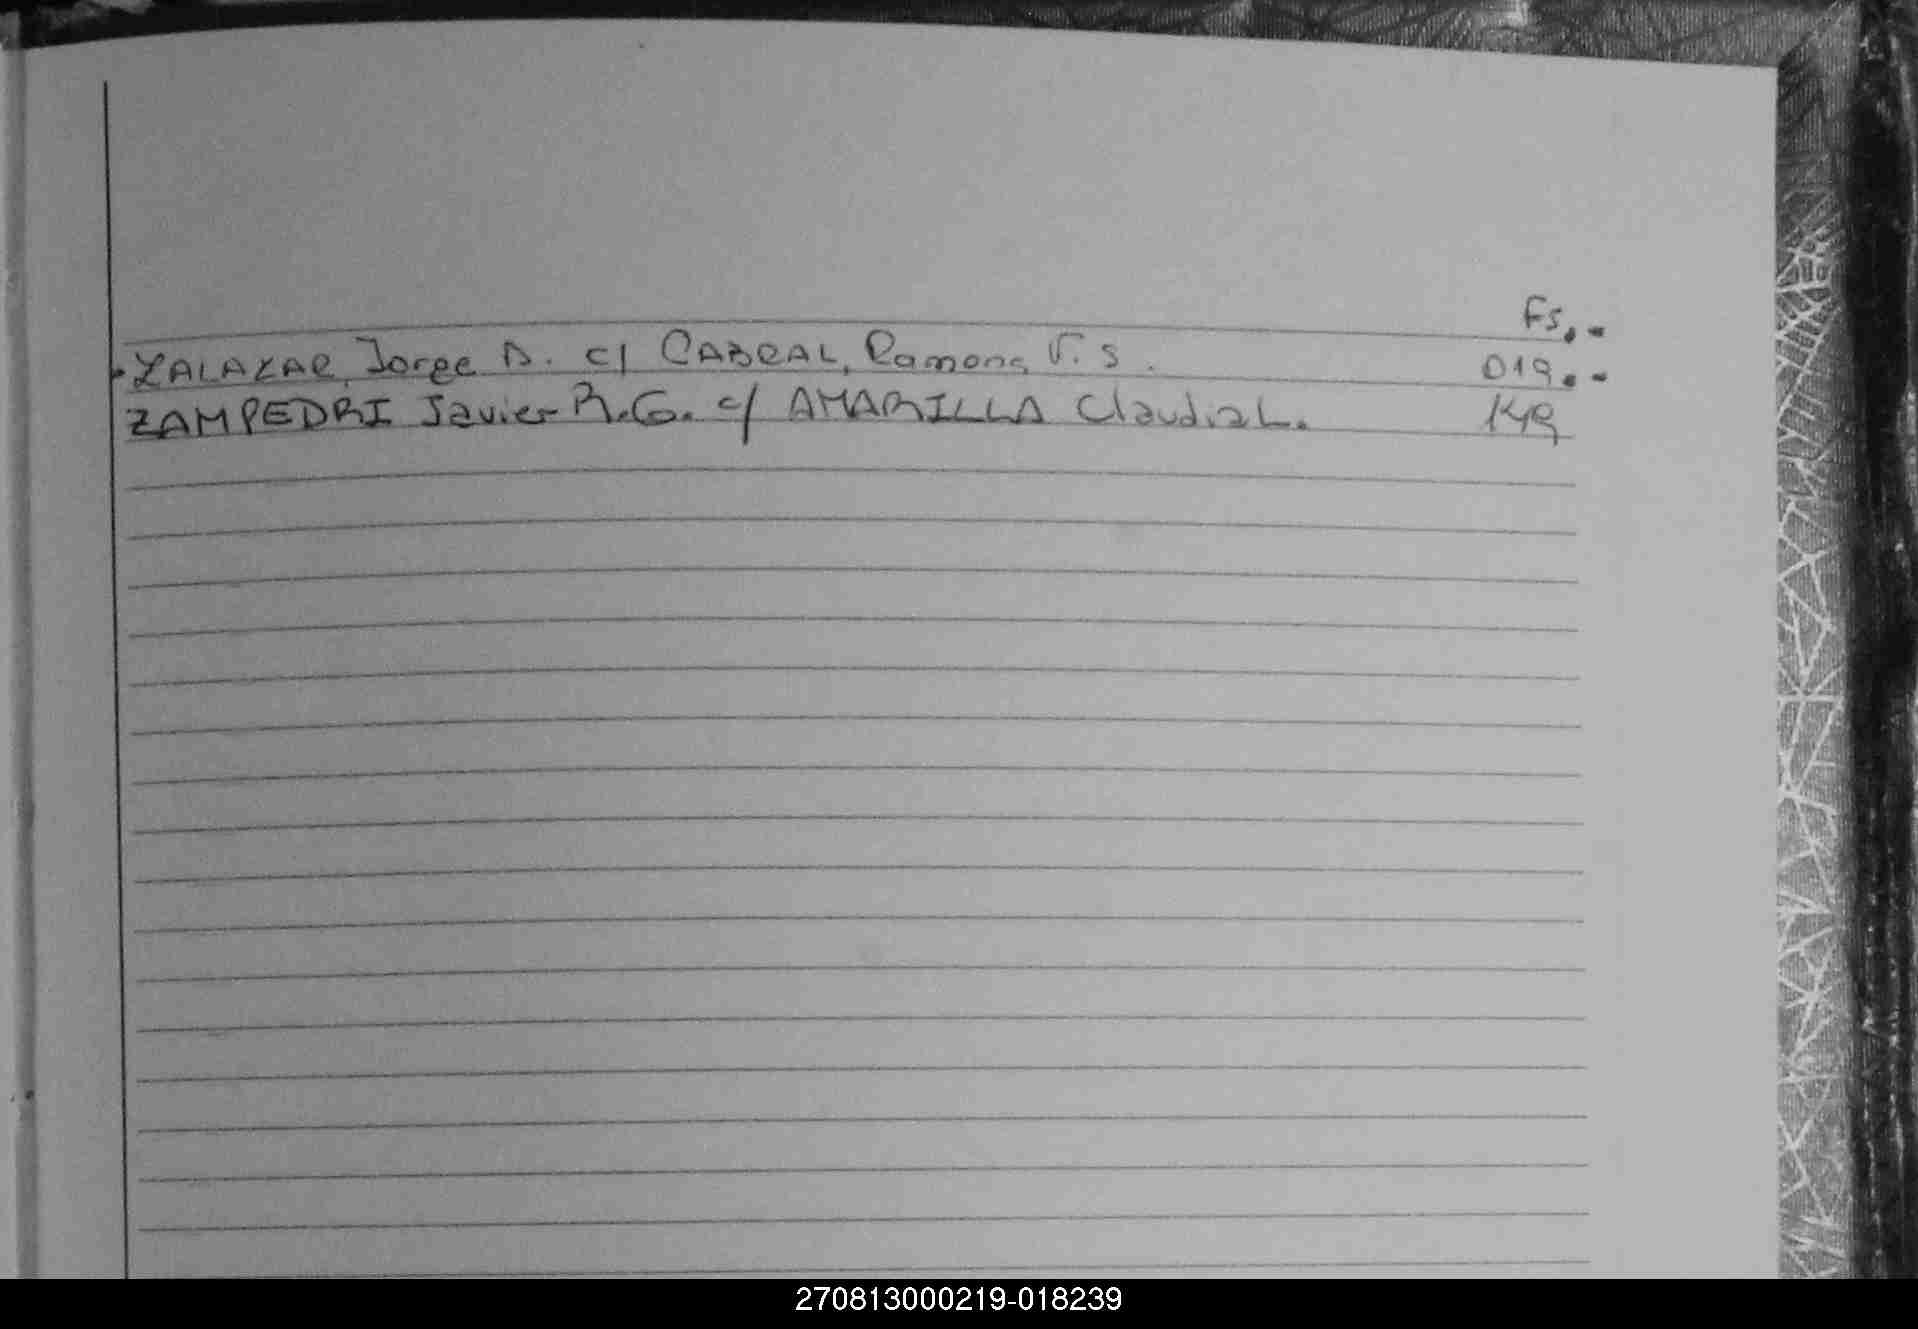 Fs..-
.ZALAZAR, Jorge D. c/ CABRAL, Ramona V. S. 019.-
ZAMPEDRI Javier R.G. c/ AMARILLA Claudia L. 149
270813000219-018239